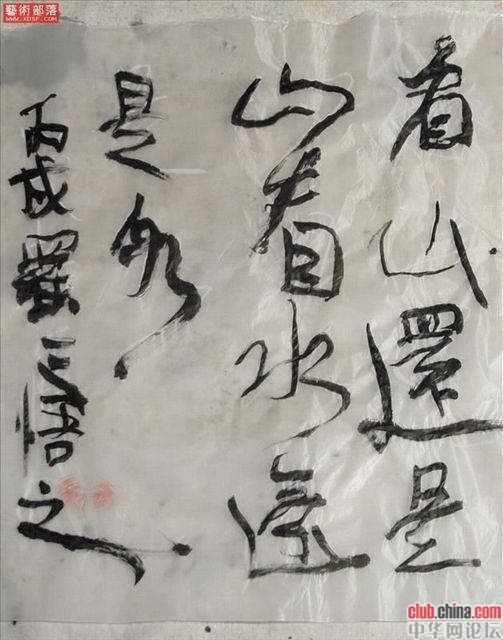 藝術部落
WWW.XDSF.COM
看山還是
山看水還
是水
丙戌羅三悟之
club.china.com
中华网论坛